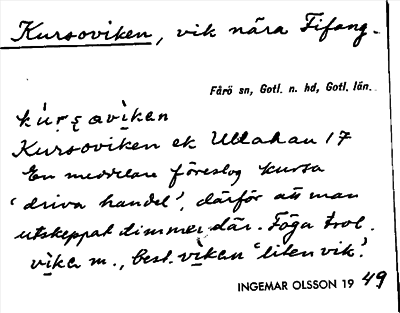 Kursoviken, vik nära Fifang-
Fårö sn, Gotl. n. hd, Gotl. län.
Kursoviken ek Ullahau 17
En meddelare föreslog kursa
'driva handel', därför att man
utskeppat timmer där. Föga trol.
vika m., best. vìken 'liten vik'.
INGEMAR OLSSON 1949